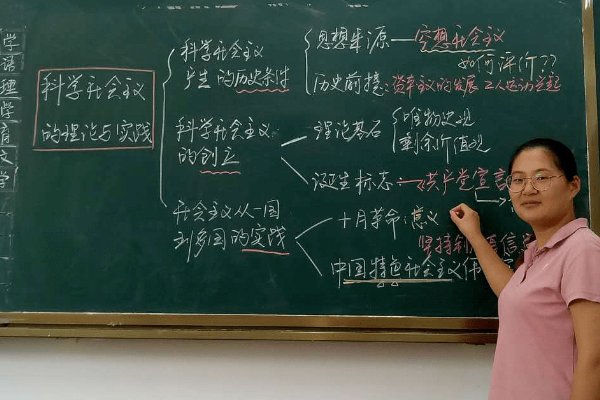 学
语
理
学
育
文
学
科学社会主义
的理论与实践
科学社会主义
产生的历史条件
思想来源—空想社会主义
如何评价??
历史前提:资本主义的发展 工人运动兴起
科学社会主义
的创立
理论基石
唯物史观
剩余价值观
诞生标志—共产党宣言
社会主义从一国
到多国的实践
十月革命:意义
坚持
信
中国特色社会主义伟